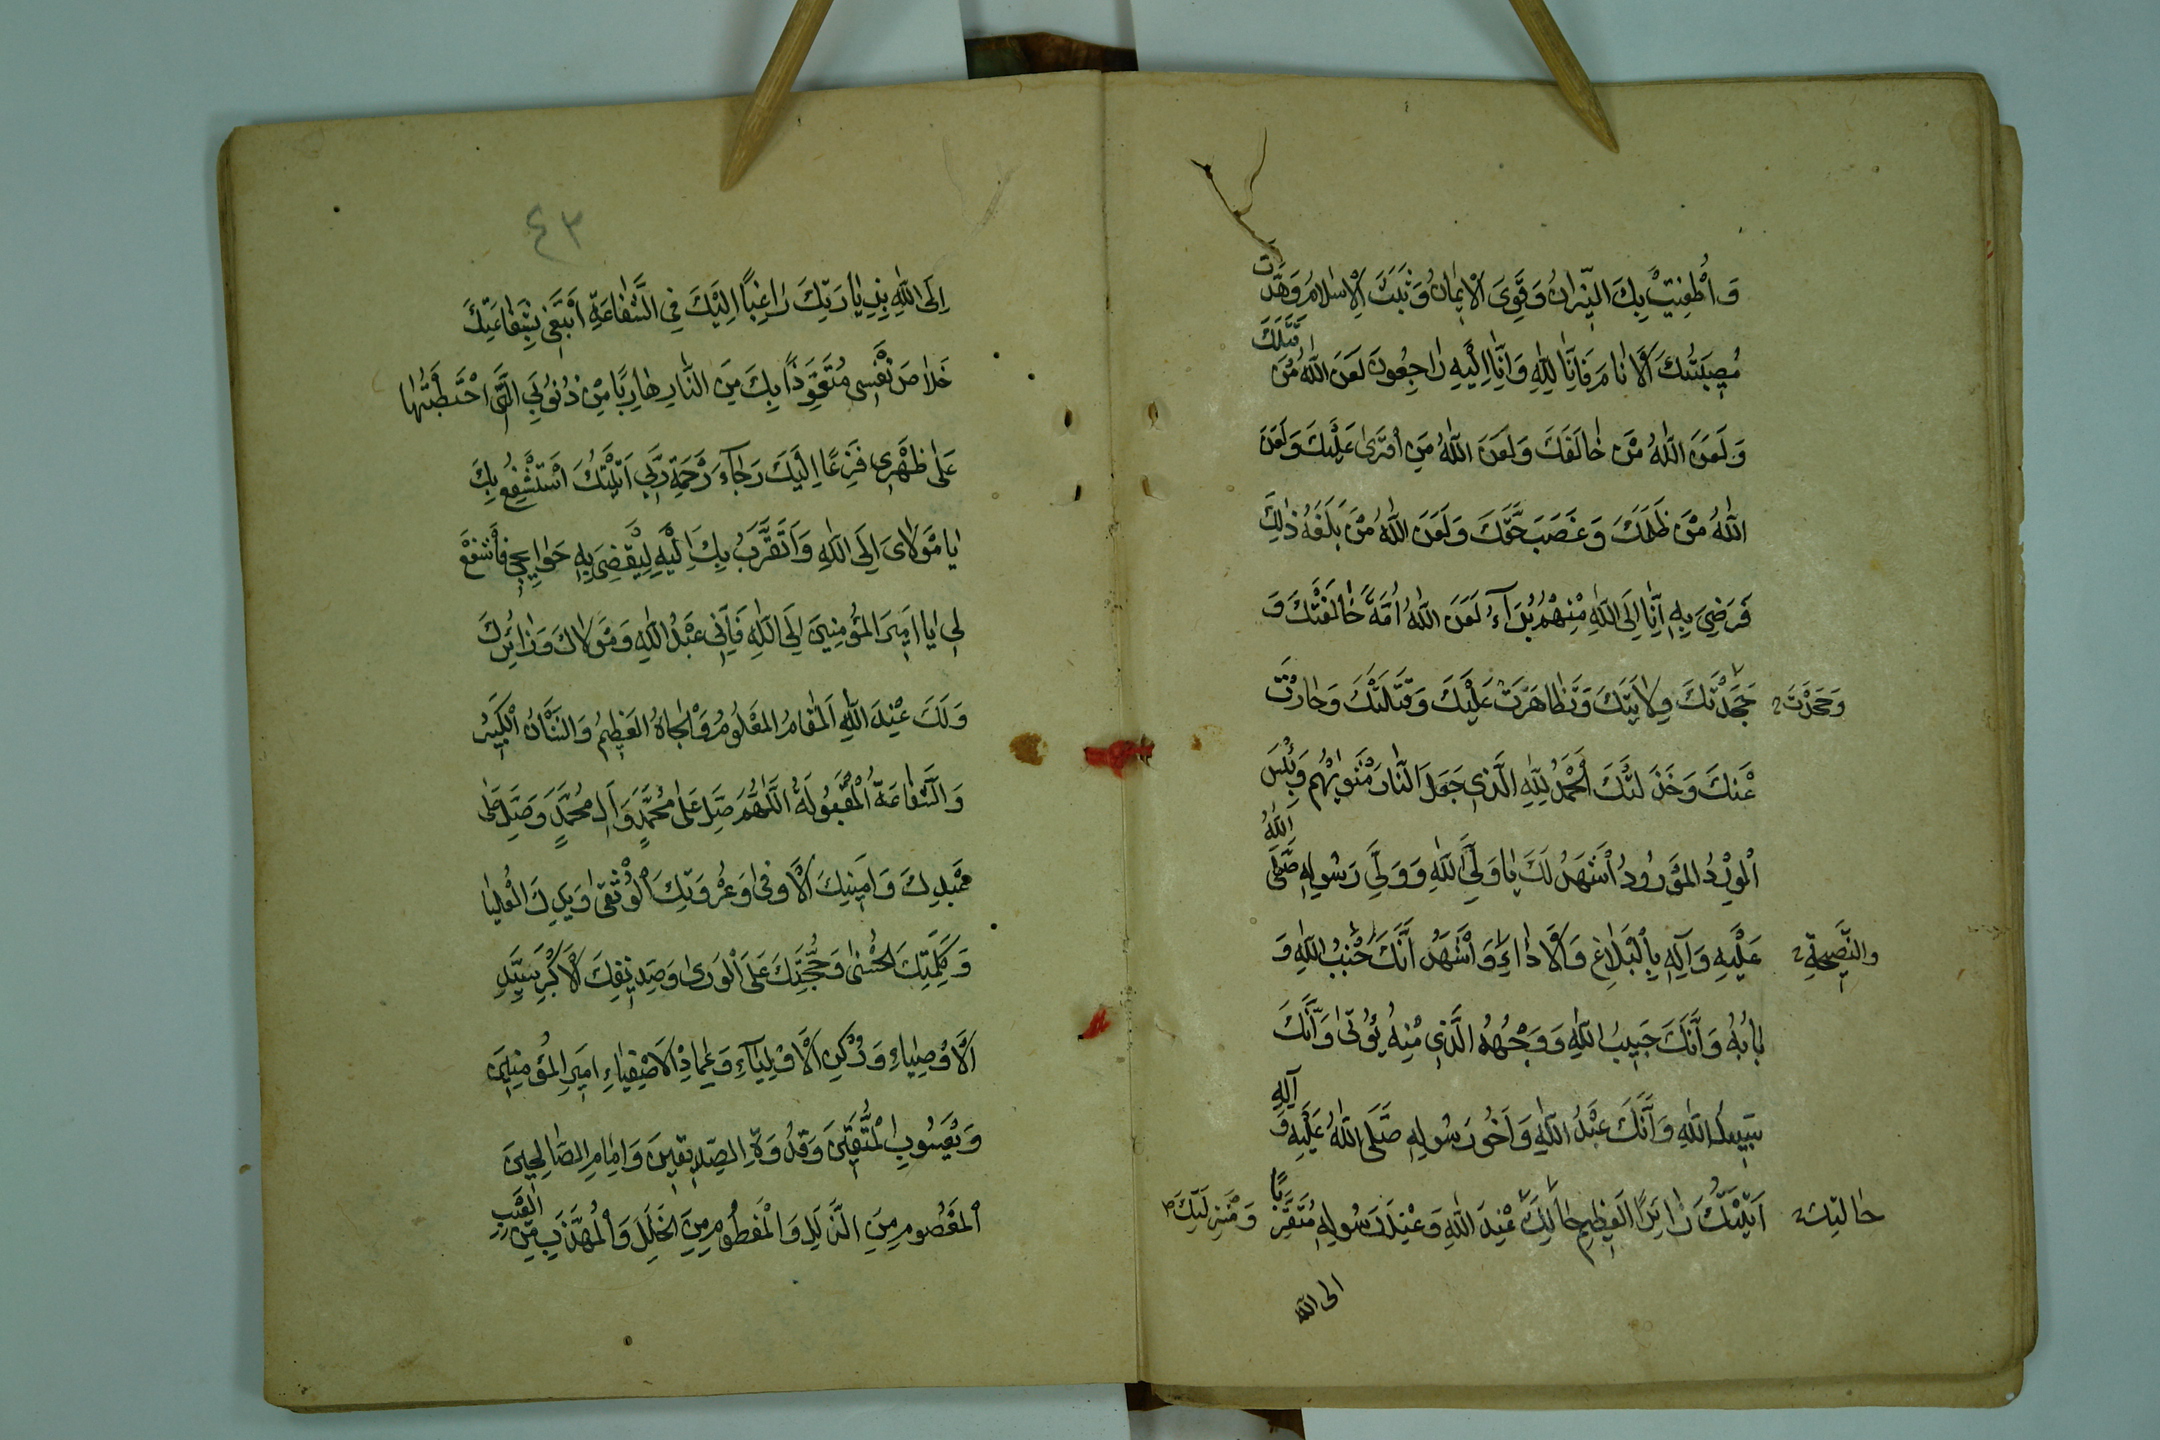 وَ اُطْفِئَتْ بِكَ النِّيرانُ وَ قَوِىَ الْاِيمانُ وَ ثَبَتَ الْاِسْلامُ وَ هَدَّت
مُصِيبَتُكَ الْاَنامَ فَاِنّا لِلّٰهِ وَ اِنّا اِلَيْهِ راجِعُونَ لَعَنَ اللّٰهُ مَنْ قَتَلَكَ
وَ لَعَنَ اللّٰهُ مَنْ خالَفَكَ وَ لَعَنَ اللّٰهُ مَنِ افْتَرىٰ عَلَيْكَ وَ لَعَنَ
اللّٰهُ مَنْ ظَلَمَكَ وَ غَصَبَ حَقَّكَ وَ لَعَنَ اللّٰهُ مَنْ بَلَغَهُ ذٰلِكَ
فَرَضِىَ بِهِ اِنّا اِلَى اللّٰهِ مِنْهُمْ بُرَآءُ لَعَنَ اللّٰهُ اُمَّةً خالَفَتْكَ وَ
جَحَدَتْكَ وِلايَتَكَ وَ تَظاهَرَتْ عَلَيْكَ وَ قَتَلَتْكَ وَ حارَتْ
وَ جَحَدَتْ
عَنْكَ وَ خَذَلَتْكَ اَلْحَمْدُ لِلّٰهِ الَّذِى جَعَلَ النّارَ مَثْويٰهُمْ وَ بِئْسَ
الْوِرْدُ الْمَوْرُودُ اَشْهَدُ لَكَ يا وَلِىَّ اللّٰهِ وَ وَلِىَّ رَسُولِهِ صَلَّى اللّٰهُ
عَلَيْهِ وَ آلِهِ بِالْبَلاغِ وَ الْاَداءِ وَ اَشْهَدُ اَنَّكَ جَنْبُ اللّٰهِ وَ
وَ النَّصِيحَةِ
بابُهُ وَ اَنَّكَ حَبِيبُ اللّٰهِ وَ وَجْهُهُ الَّذِى مِنْهُ يُؤْتىٰ وَ اَنَّكَ
سَبِيلُ اللّٰهِ وَ اَنَّكَ عَبْدُ اللّٰهِ وَ اَخُو رَسُولِهِ صَلَّى اللّٰهُ عَلَيْهِ وَ آلِهِ
اَتَيْتُكَ زائِرًا لِعَظِيمِ حالِكَ عِنْدَ اللّٰهِ وَ عِنْدَ رَسُولِهِ مُتَقَرِّبًا
حالتِكَ
وَ مَنْزِلَتِكَ
الى الله
٤٣
اِلَى اللّٰهِ بِزِيارَتِكَ راغِبًا اِلَيْكَ فِى الشَّفاعَةِ اَبْتَغِى بِشَفاعَتِكَ
خَلاصَ نَفْسِى مُتَعَوِّذًا بِكَ مِنَ النّارِ هارِبًا مِنْ ذُنُوبِىَ الَّتِى احْتَطَبْتُها
عَلىٰ ظَهْرِى فَزِعًا اِلَيْكَ رَجآءَ رَحْمَةِ رَبِّى اَتَيْتُكَ اَسْتَشْفِعُ بِكَ
يا مَوْلاىَ اِلَى اللّٰهِ وَ اَتَقَرَّبُ بِكَ اِلَيْهِ لِيَقْضِىَ بِهِ حَوايِجِى فَاشْفَعْ
لِى يا اَمِيرَ الْمُؤْمِنِينَ اِلَى اللّٰهِ فَاِنِّى عَبْدُ اللّٰهِ وَ مَوْلاكَ وَ زائِرُكَ
وَ لَكَ عِنْدَ اللّٰهِ الْمَقامُ الْمَعْلُومُ وَ الْجاهُ الْعَظِيمُ وَ الشَّأْنُ الْكَبِيرُ
وَ الشَّفاعَةُ الْمَقْبُولَةُ اَللّٰهُمَّ صَلِّ عَلىٰ مُحَمَّدٍ وَ آلِ مُحَمَّدٍ وَ صَلِّ عَلىٰ
عَبْدِكَ وَ اَمِينِكَ الْاَوْفىٰ وَ عُرْوَتِكَ الْوُثْقىٰ وَ يَدِكَ الْعُلْيا
وَ كَلِمَتِكَ الْحُسْنىٰ وَ حُجَّتِكَ عَلَى الْوَرىٰ وَ صِدِّيقِكَ الْاَكْبَرِ سَيِّدِ
الْاَوْصِياءِ وَ رُكْنِ الْاَوْلِيآءِ وَ عِمادِ الْاَصْفِياءِ اَمِيرِ الْمُؤْمِنِينَ
وَ يَعْسُوبِ الْمُتَّقِينَ وَ قُدْوَةِ الصِّدِّيقِينَ وَ اِمامِ الصّالِحِينَ
الْمَعْصُومِ مِنَ الزَّلَلِ وَ الْمَفْطُومِ مِنَ الْخَلَلِ وَ الْمُهَذَّبِ مِنَ الْعَيْبِ